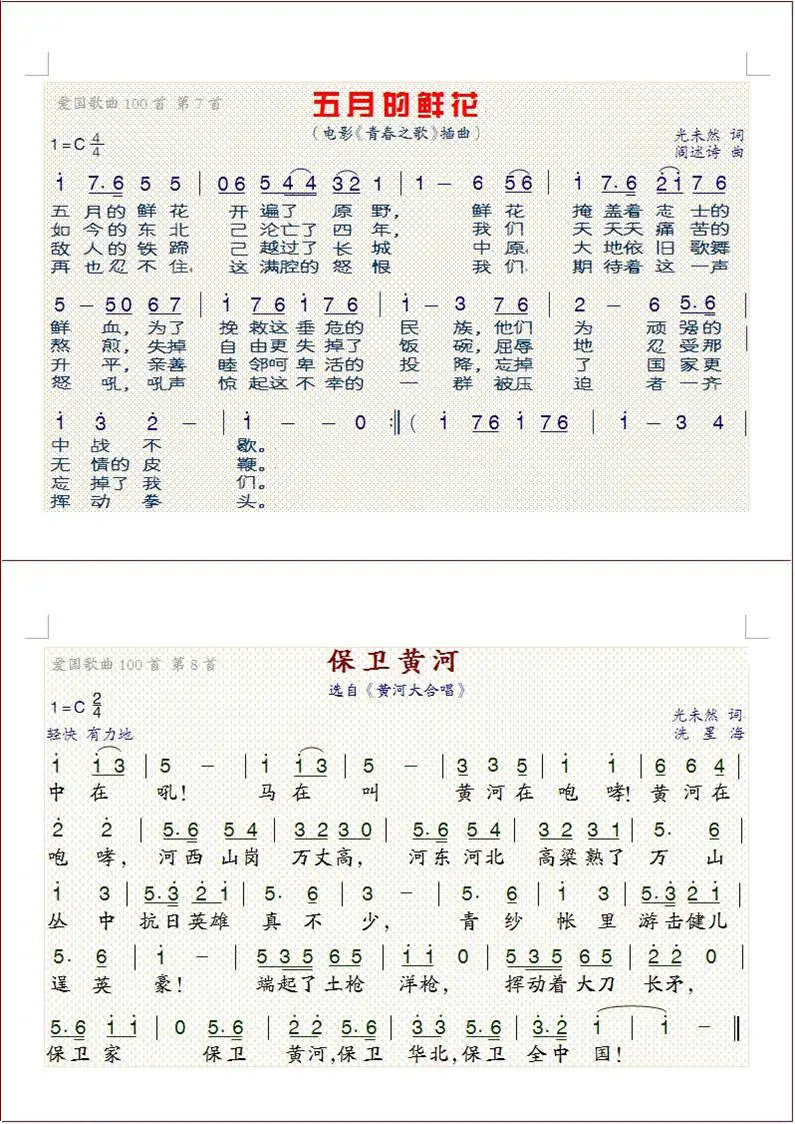 爱国歌曲100首 第7首
五月的鲜花
(电影《青春之歌》插曲)
1=C 4/4
光未然 词
阎述诗 曲
i 7.6 5 5 | 06 5 44 32 1 | 1 - 6 56 | i 7.6 2i 76
五月的鲜花 开遍了原野, 鲜花 掩盖着志士的
如今的东北 己沦亡了四年, 我们 天天天痛苦的
敌人的铁蹄 己越过了长城 中原 大地依旧歌舞
再也忍不住 这满腔的怒恨 我们 期待着这一声
5 - 50 67 | i 76 i 76 | i - 3 76 | 2 - 6 5.6 |
鲜血,为了 挽救这垂危的 民族,他们 为顽强的
熬煎,失掉 自由更失掉了 饭碗,屈辱 地忍受那
升平,亲善 睦邻呵卑活的 投降,忘掉 了国家更
怒吼,吼声 惊起这不幸的 一群被压 迫者一齐
i 3 2 - | i - - 0 :|| ( i 76 i 76 | i - 3 4 |
中战不 歇。
无情的皮 鞭。
忘掉了我 们。
挥动拳 头。
爱国歌曲100首 第8首
保卫黄河
选自《黄河大合唱》
1=C 2/4
轻快 有力地
光未然 词
洗星海
i i3 | 5 - | i i3 | 5 - | 3 3 5 | i i | 6 6 4 |
中在 吼! 马在 叫 黄河在咆哮!黄河在
2 2 | 5.6 54 | 323 0 | 5.6 54 | 323 1 | 5. 6
咆哮, 河西山岗 万丈高, 河东河北 高梁熟了 万山
i 3 | 5.3 2i | 5. 6 | 3 - | 5. 6 | i 3 | 5.3 2i |
丛中 抗日英雄 真不少, 青纱帐里 游击健儿
5. 6 | i - | 535 65 | i 0 | 535 65 | 22 0 |
逞英豪! 端起了土枪 洋枪, 挥动着大刀 长矛,
5.6 ii | 0 5.6 | 22 5.6 | 33 5.6 | 3.2 i | i - ||
保卫家 保卫 黄河,保卫 华北,保卫 全中国!